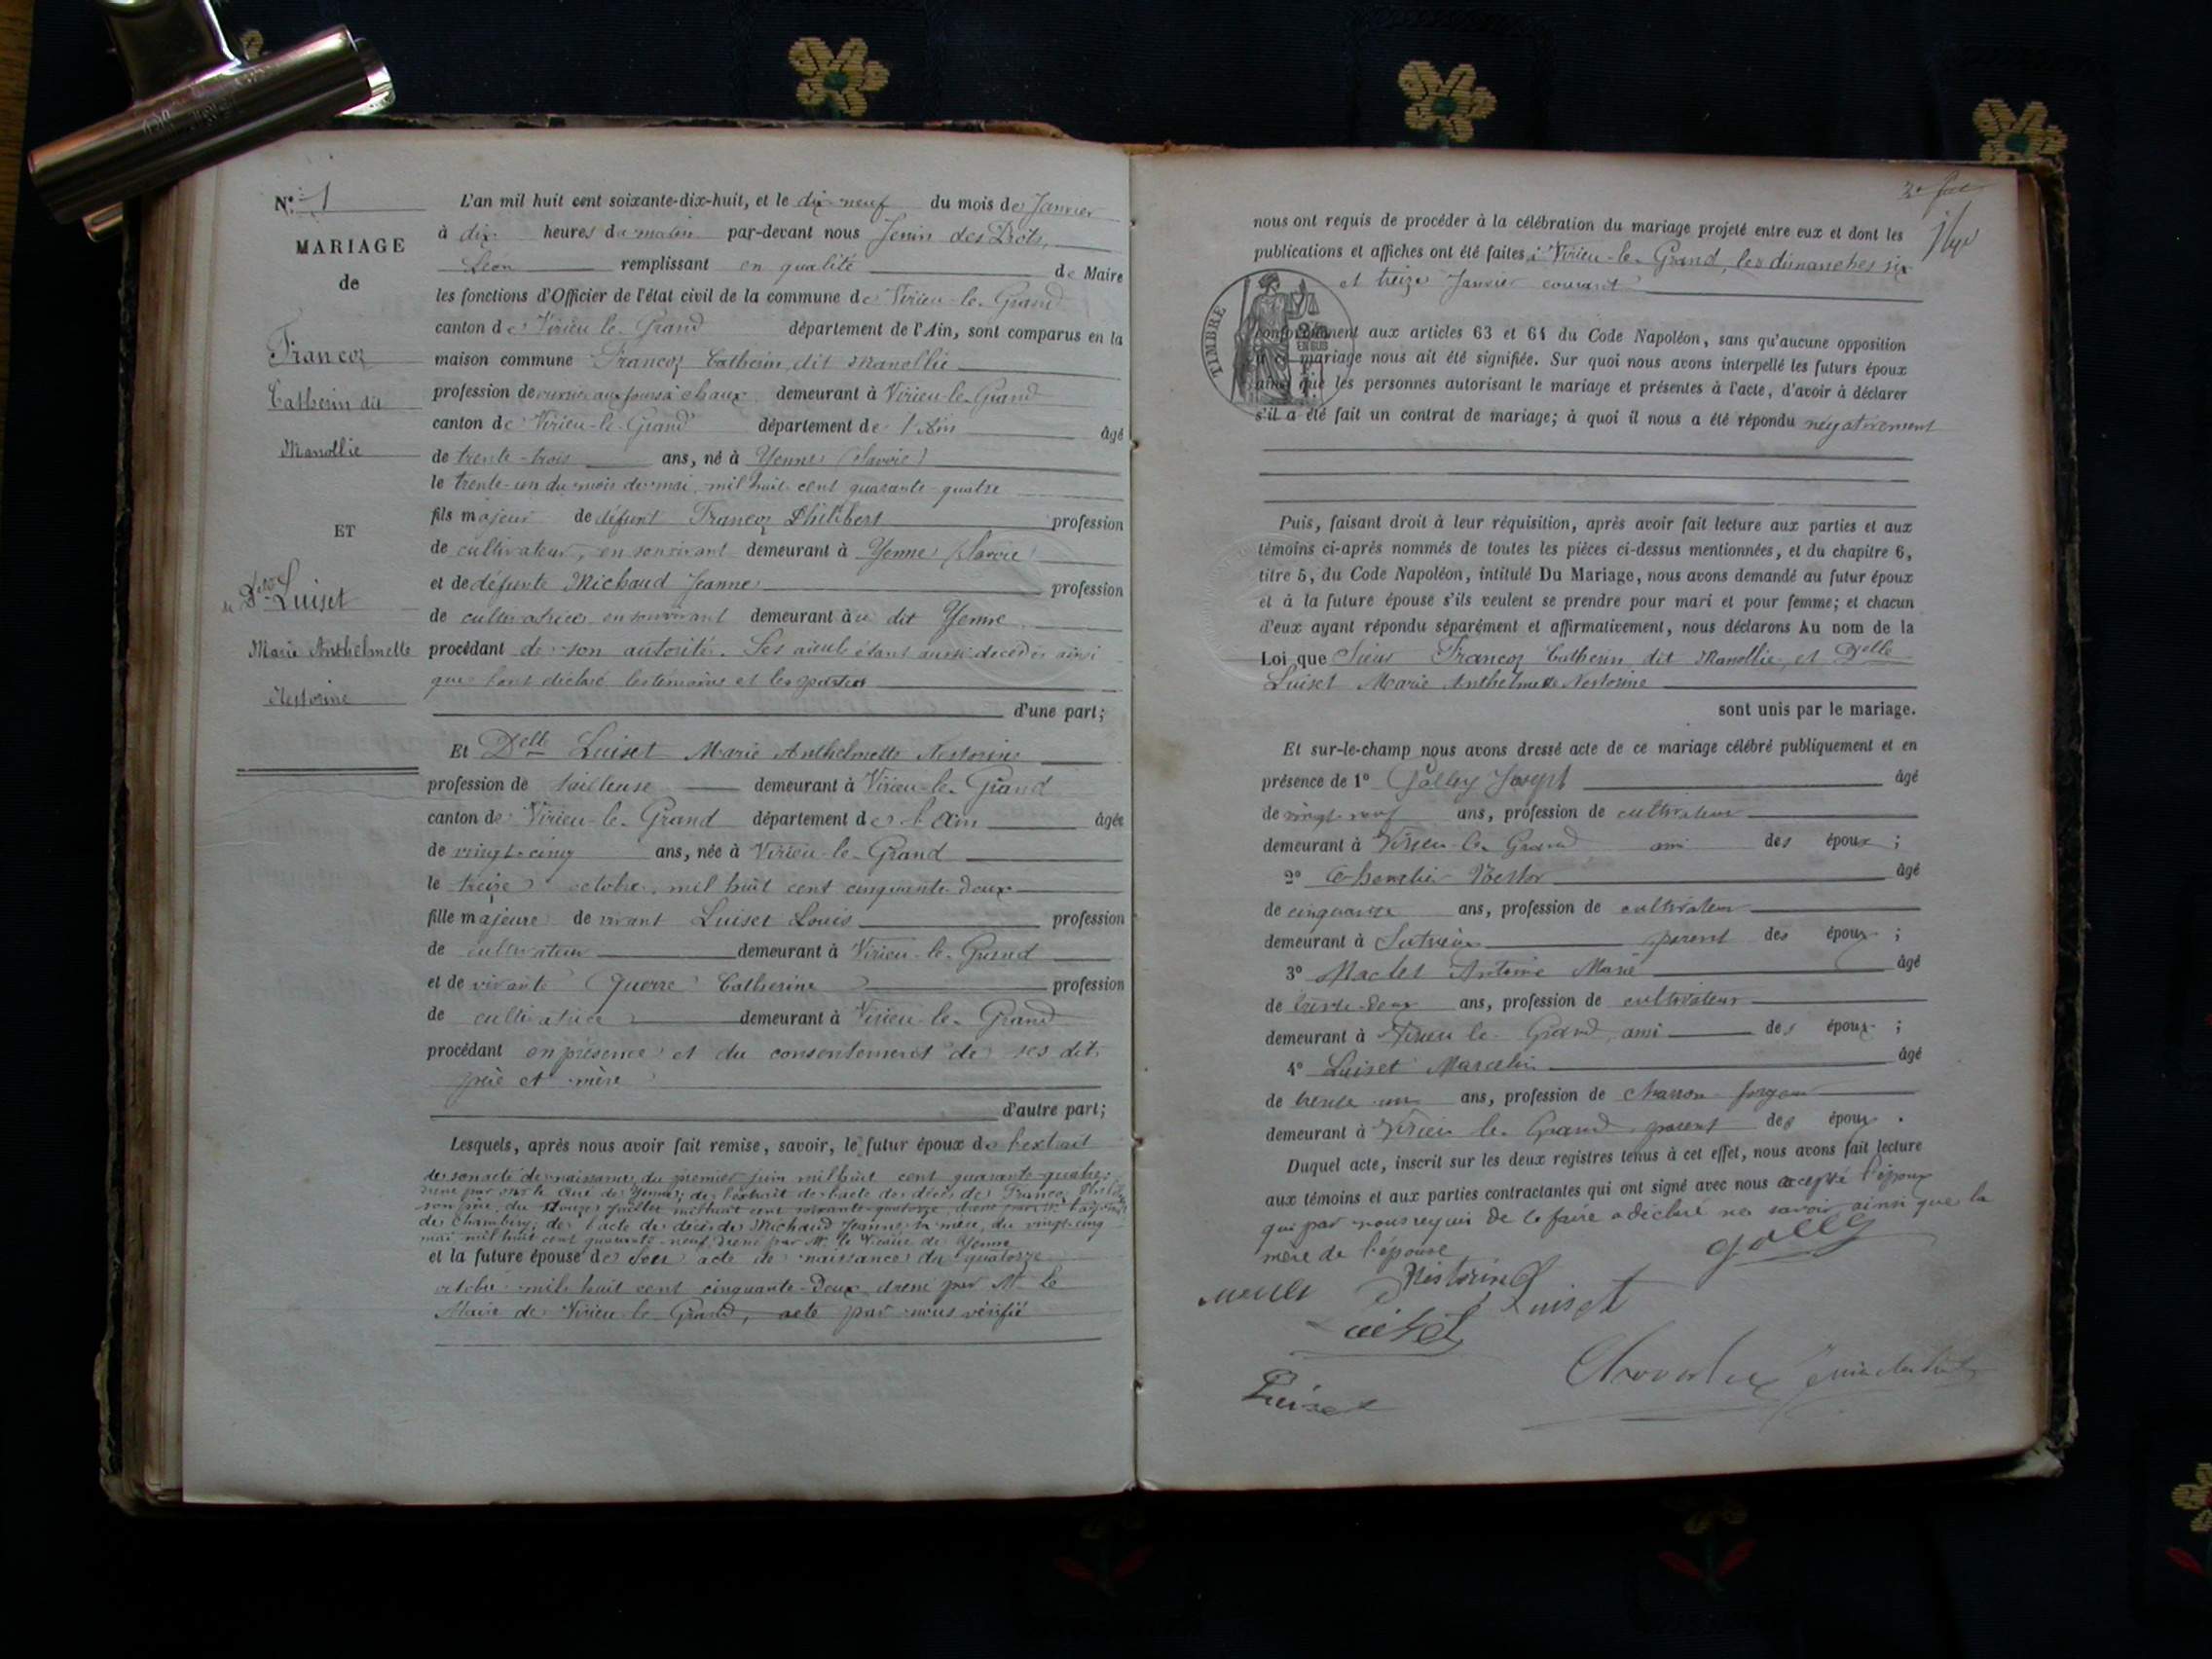 N° 1
MARIAGE
de
Francoz
Catherin dit
Manollie
ET
Delle Luiset
Marie Anthelmette
Nestorine
L'an mil huit cent soixante-dix-huit, et le dix-neuf du mois de Janvier
à dix heures du matin par-devant nous Jenin des Prots,
Léon remplissant en qualité de Maire
les fonctions d'Officier de l'état civil de la commune de Virieu-le-Grand
canton de Virieu le-Grand département de l'Ain, sont comparus en la
maison commune Francoz Catherin, dit Manollie
profession de ouvrier aux fours à chaux demeurant à Virieu-le-Grand
canton de Virieu-le-Grand département de l'Ain âgé
de trente-trois ans, né à Yenne (Savoie)
le trente-un du mois de mai, mil huit cent quarante-quatre
fils majeur de défunt Francoz Philibert profession
de cultivateur, en son vivant demeurant à Yenne (Savoie)
et de défunte Michaud Jeanne profession
de cultivatrice, en son vivant demeurant au dit Yenne
procédant de son autorité. Ses aïeuls étant aussi décédés ainsi
que l'ont déclaré les témoins et les parties
d'une part;
Et Delle Luiset Marie Anthelmette Nestorine
profession de tailleuse demeurant à Virieu-le-Grand
canton de Virieu-le-Grand département de l'Ain âgée
de vingt-cinq ans, née à Virieu-le-Grand
le treize octobre, mil huit cent cinquante-deux
fille majeure de vivant Luiset Louis profession
de cultivateur demeurant à Virieu-le-Grand
et de vivante Guerre Catherine profession
de cultivatrice demeurant à Virieu-le-Grand
procédant en présence et du consentement de ses dits
père et mère
d'autre part;
Lesquels, après nous avoir fait remise, savoir, le futur époux de l'extrait
de son acte de naissance du premier juin mil huit cent quarante-quatre,
dréné par le curé de Yenne; de l'extrait de l'acte de décès de Francoz
son père, du douze juillet mil huit cent soixante-quatorze, dréné par
de Chambéry; de l'acte de décès de Michaud Jeanne sa mère, du vingt-cinq
mai mil huit cent quarante-neuf, dréné par Mr le Vicaire de Yenne
et la future épouse de son acte de naissance du quatorze
octobre mil huit cent cinquante-deux dréné par Mr Le
Maire de Virieu-le-Grand, acte par nous vérifié
nous ont requis de procéder à la célébration du mariage projeté entre eux et dont les
publications et affiches ont été faites à Virieu-le-Grand, les dimanches six
et treize Janvier courant
TIMBRE
conformément aux articles 63 et 64 du Code Napoléon, sans qu'aucune opposition
à ce mariage nous ait été signifiée. Sur quoi nous avons interpellé les futurs époux
ainsi que les personnes autorisant le mariage et présentes à l'acte, d'avoir à déclarer
s'il a été fait un contrat de mariage; à quoi il nous a été répondu négativement
Puis, faisant droit à leur réquisition, après avoir fait lecture aux parties et aux
témoins ci-après nommés de toutes les pièces ci-dessus mentionnées, et du chapitre 6,
titre 5, du Code Napoléon, intitulé Du Mariage, nous avons demandé au futur époux
et à la future épouse s'ils veulent se prendre pour mari et pour femme; et chacun
d'eux ayant répondu séparément et affirmativement, nous déclarons Au nom de la
Loi que Sieur Francoz Catherin dit Manollie, et Delle
Luiset Marie Anthelmette Nestorine
sont unis par le mariage.
Et sur-le-champ nous avons dressé acte de ce mariage célébré publiquement et en
présence de 1° Golley Joseph âgé
de vingt-neuf ans, profession de cultivateur
demeurant à Virieu-le-Grand ami des époux;
2° Chevalier Nestor âgé
de cinquante ans, profession de cultivateur
demeurant à Sutrieu parent des époux;
3° Maclet Antoine Marie âgé
de trente-deux ans, profession de cultivateur
demeurant à Virieu le-Grand, ami des époux;
4° Luiset Marcelin âgé
de trente-un ans, profession de charron-forgeur
demeurant à Virieu le-Grand parent des époux.
Duquel acte, inscrit sur les deux registres tenus à cet effet, nous avons fait lecture
aux témoins et aux parties contractantes qui ont signé avec nous excepté l'époux
qui par nous requis de le faire a déclaré ne savoir ainsi que la
mère de l'épouse
Golley
Nestorine
Luiset
Luiset